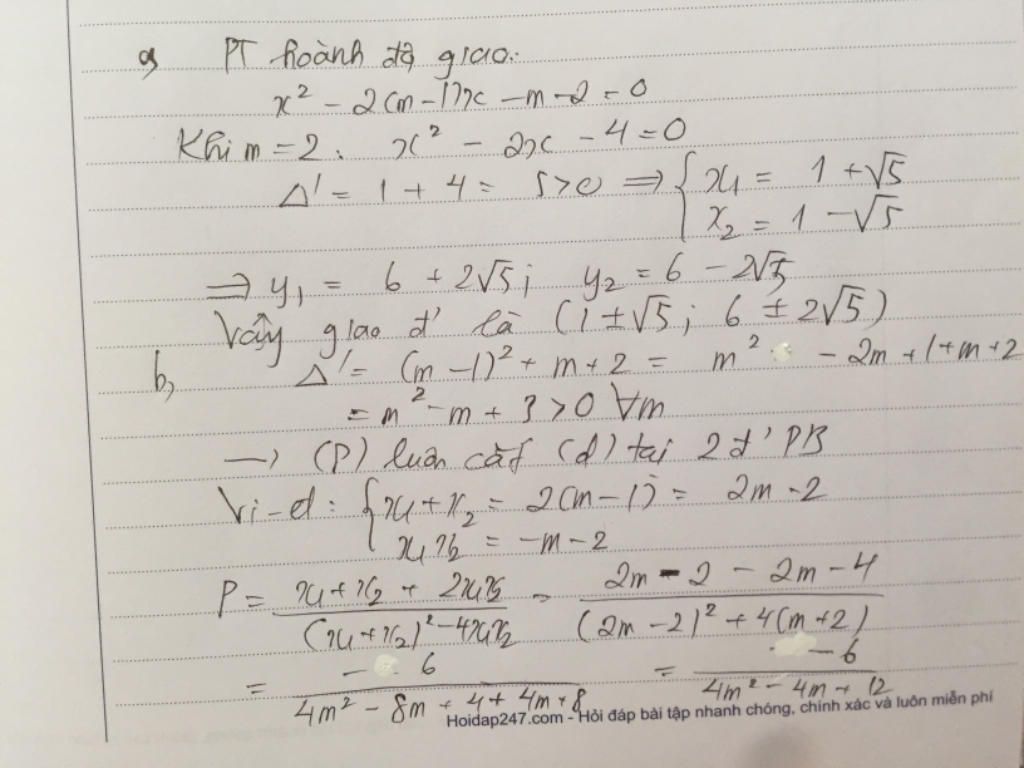 a, PT hoành độ giao:
x² - 2(m-1)x - m - 2 = 0
Khi m = 2: x² - 2x - 4 = 0
Δ' = 1 + 4 = 5 > 0 ⇒ { x₁ = 1 + √5
x₂ = 1 - √5
⇒ y₁ = 6 + 2√5; y₂ = 6 - 2√5
Vậy giao đ' là (1 ± √5; 6 ± 2√5)
b, Δ' = (m-1)² + m + 2 = m² - 2m + 1 + m + 2
= m² - m + 3 > 0 ∀m
→ (P) luôn cắt (d) tại 2 đ' PB
Vi-et: { x₁ + x₂ = 2(m-1) = 2m - 2
x₁x₂ = -m - 2
P = (x₁ + x₂ + 2x₁x₂)/((x₁ + x₂)² - 4x₁x₂) = (2m - 2 - 2m - 4)/((2m - 2)² + 4(m + 2))
= -6/(4m² - 8m + 4 + 4m + 8) = -6/(4m² - 4m + 12)
Hoidap247.com - Hỏi đáp bài tập nhanh chóng, chính xác và luôn miễn phí